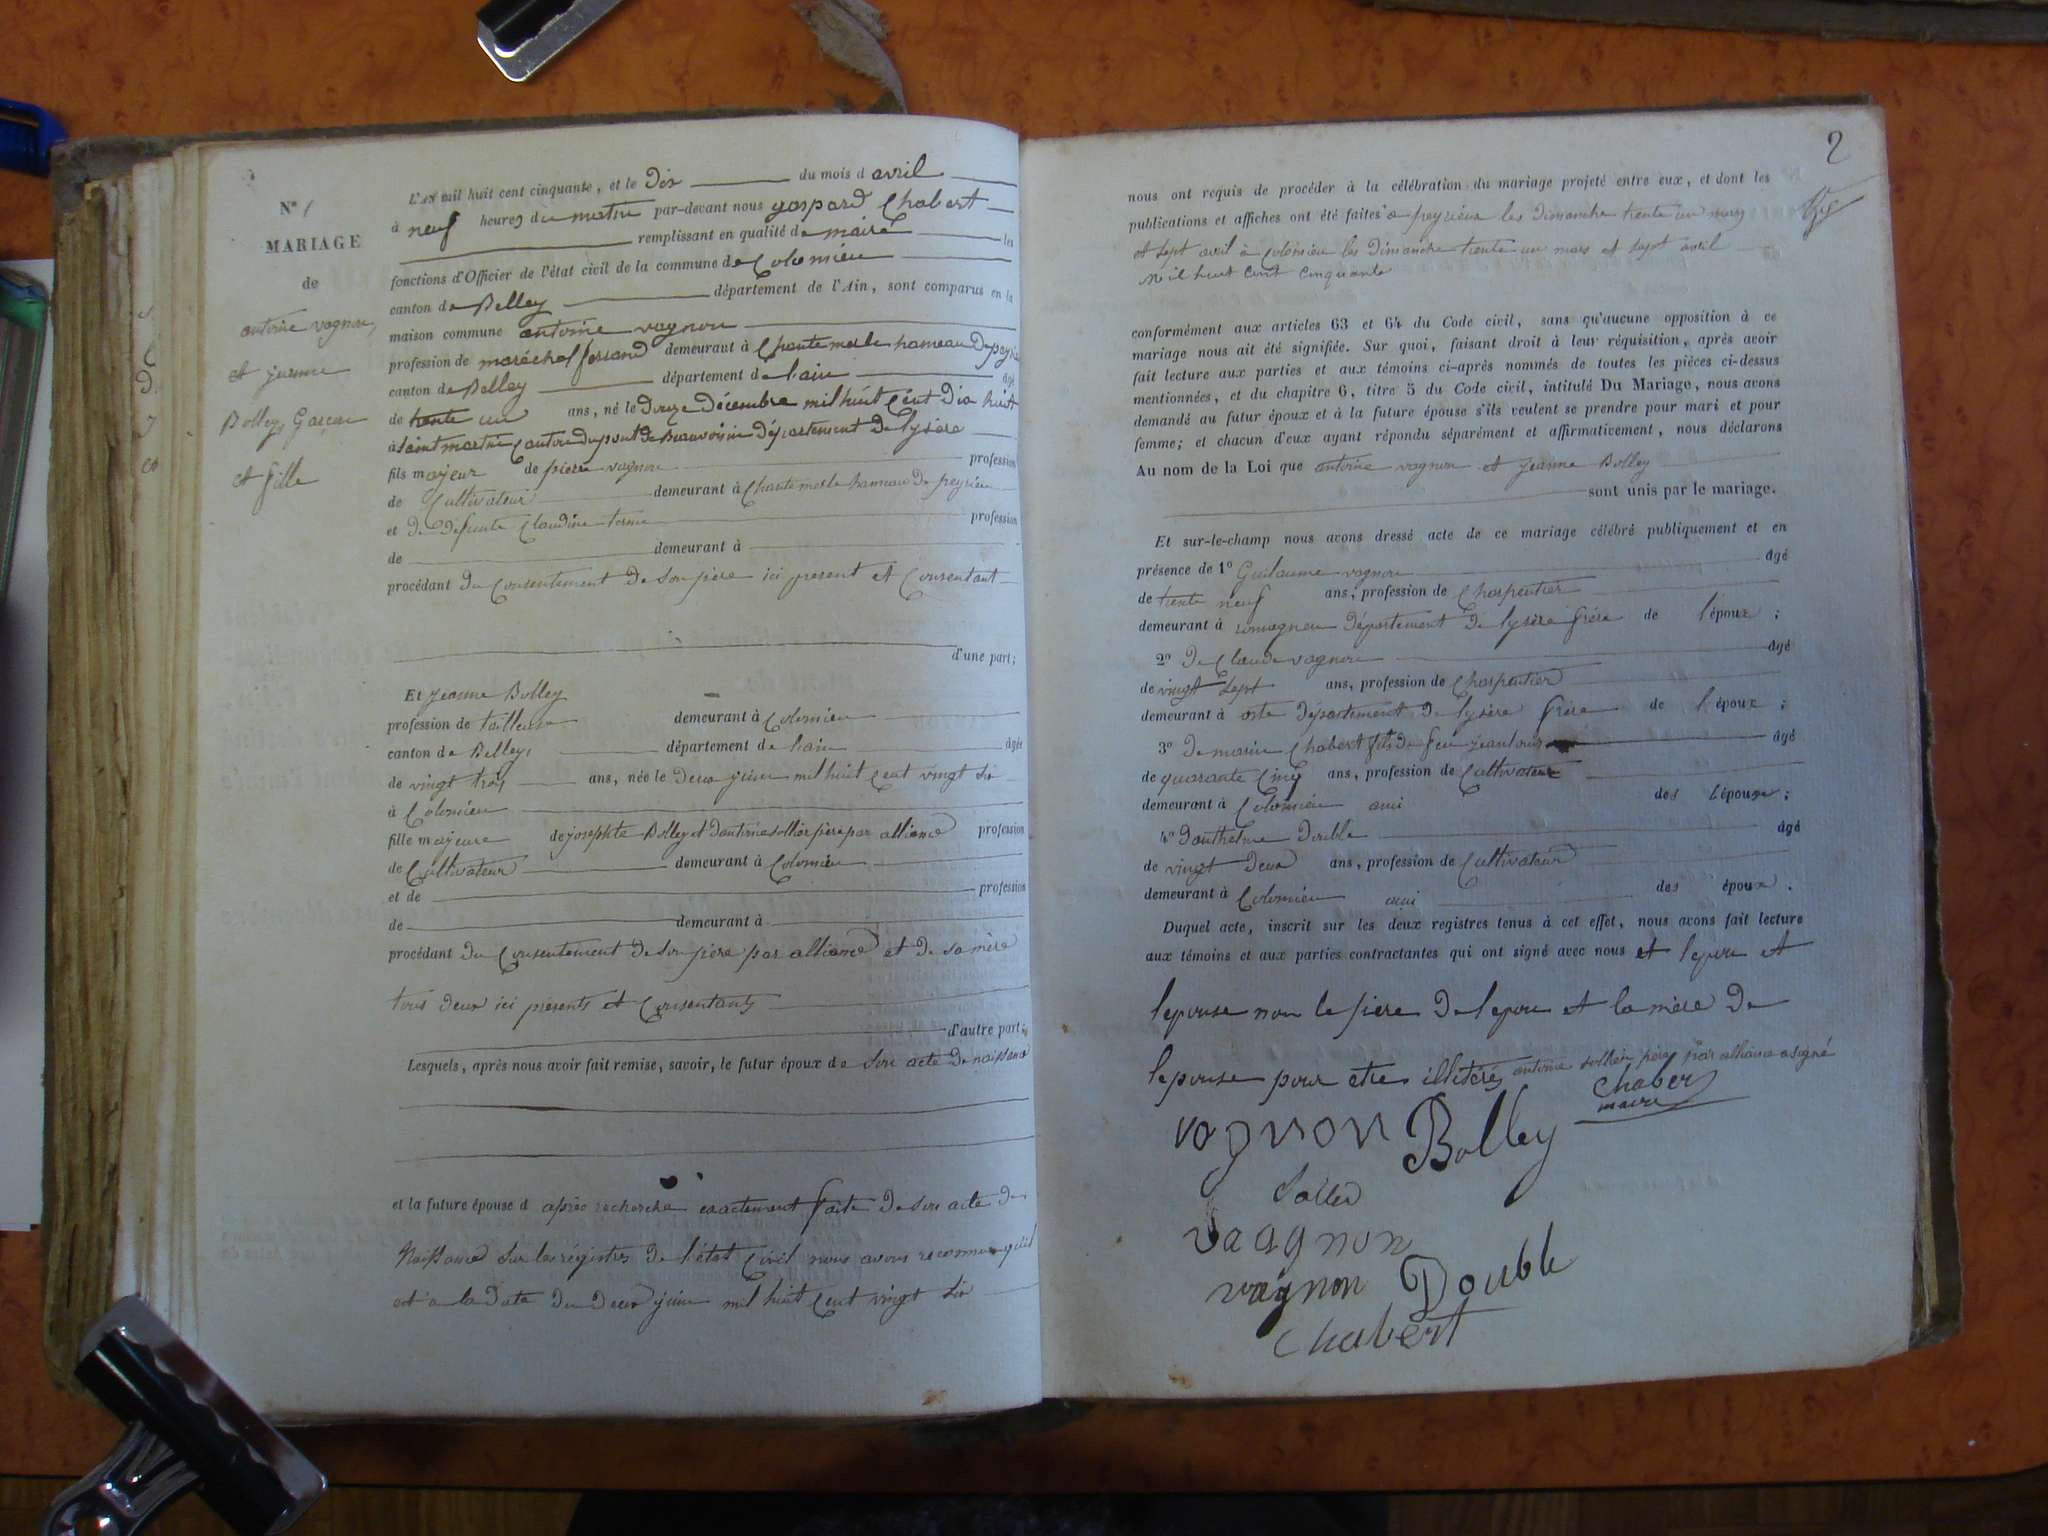 N° 1
MARIAGE
de
antoine vagnon,
et jeanne
Bolley, Garçon
et fille
L'AN mil huit cent cinquante, et le Dix du mois d avril
à neuf heures du matin par-devant nous gaspard Chabert
remplissant en qualité de maire les
fonctions d'Officier de l'état civil de la commune de Colomieu
canton de Belley département de l'Ain, sont comparus en la
maison commune antoine vagnon
profession de maréchal ferrand demeurant à Chantemerle hameau De peyrieu
canton de Belley département de lain âgé
de trente un ans, né le Douze Décembre mil huit Cent Dix huit
à Saint martin Canton du pont de Beauvoisin Département De lysère
fils majeur de pierre vagnon profession
de Cultivateur demeurant à Chantemerle hameau De peyrieu
et De Defunte Claudine terme profession
de demeurant à
procédant du Consentement De Son père ici present et Consentant
d'une part;
Et jeanne Bolley
profession de tailleuse demeurant à Colomieu
canton de Belley, département de lain âgée
de vingt trois ans, née le Deux juin mil huit Cent vingt Six
à Colomieu
fille majeure de josephte Bolley et Dantoine Sollier père par alliance profession
de Cultivateur demeurant à Colomieu
et de profession
de demeurant à
procédant du Consentement De Son père par alliance et De Sa mère
tous Deux ici présents et Consentants
d'autre part;
Lesquels, après nous avoir fait remise, savoir, le futur époux de Son acte De naissance
et la future épouse d après recherche exactement faite De Son acte De
Naissance Sur les régistres De l'état Civil nous avons reconnu quil
est a la Date Du Deux juin mil huit Cent vingt Six
2
nous ont requis de procéder à la célébration du mariage projeté entre eux, et dont les
publications et affiches ont été faites à peyrieux les Dimanche trente un mars
et Sept avril à Colomieu les Dimanche trente un mars et Sept avril
mil huit Cent Cinquante
conformément aux articles 63 et 64 du Code civil, sans qu'aucune opposition à ce
mariage nous ait été signifiée. Sur quoi, faisant droit à leur réquisition, après avoir
fait lecture aux parties et aux témoins ci-après nommés de toutes les pièces ci-dessus
mentionnées, et du chapitre 6, titre 5 du Code civil, intitulé Du Mariage, nous avons
demandé au futur époux et à la future épouse s'ils veulent se prendre pour mari et pour
femme; et chacun d'eux ayant répondu séparément et affirmativement, nous déclarons
Au nom de la Loi que antoine vagnon et jeanne Bolley
sont unis par le mariage.
Et sur-le-champ nous avons dressé acte de ce mariage célébré publiquement et en
présence de 1° Guilaume vagnon âgé
de trente neuf ans, profession de Charpentier
demeurant à romagneu Département De lysère frère de l'époux;
2° De Claude vagnon âgé
de vingt Sept ans, profession de Charpentier
demeurant à aste Département De lysère frère de l'époux;
3° De marin Chabert fils De feu jean louis âgé
de quarante Cinq ans, profession de Cultivateur
demeurant à Colomieu ami des l'épouxe;
4° Danthelme Double âgé
de vingt Deux ans, profession de Cultivateur
demeurant à Colomieu ami des époux.
Duquel acte, inscrit sur les deux registres tenus à cet effet, nous avons fait lecture
aux témoins et aux parties contractantes qui ont signé avec nous et lepoux et
lepouse non le père De lepoux et la mère De
lepouse pour etre illitérés antoine Sollier père par alliance a signé
Chabert
maire
vagnon Bolley
Sollier
vaagnon
vagnon Double
Chabert